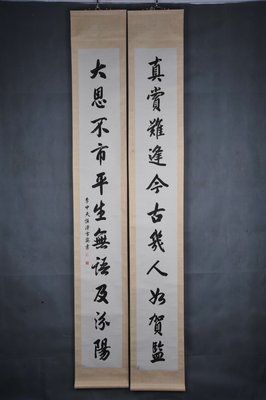 真賞難逢今古幾人如賀監
大恩不市平生無語及汾陽